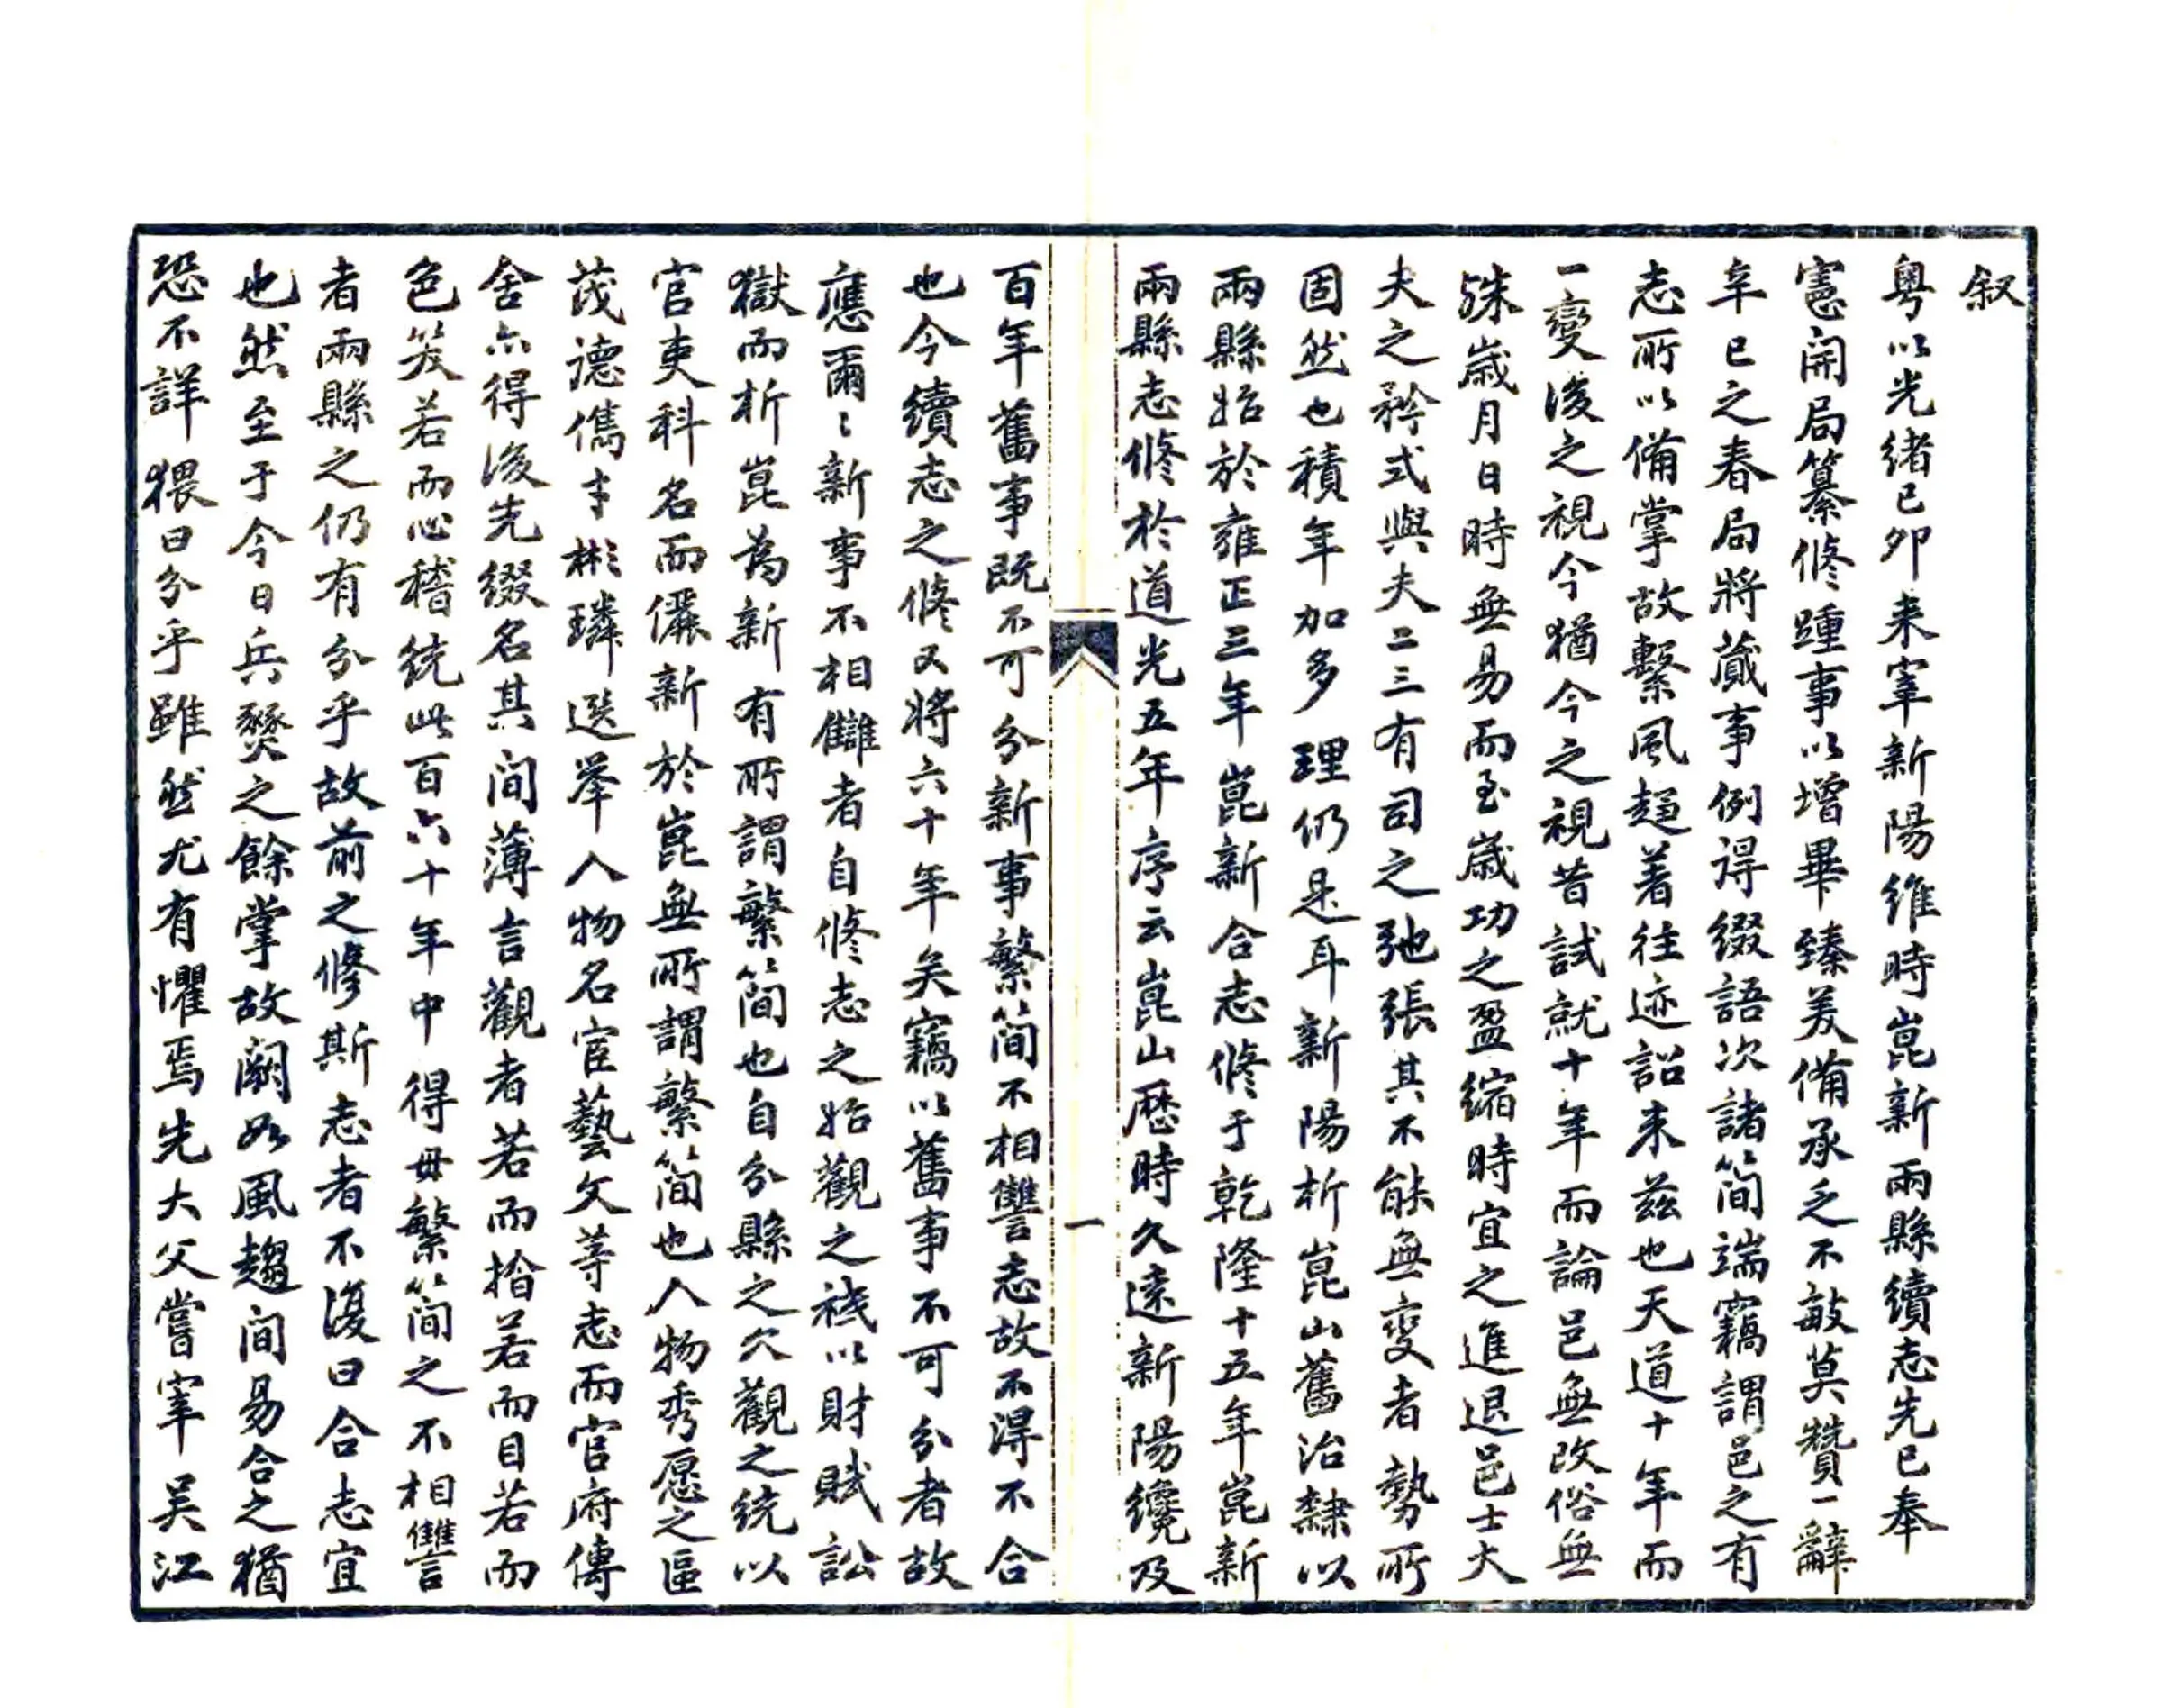 叙
粵以光緒已卯来宰新陽維時崑新兩縣續志先已奉
憲開局纂修踵事以增畢臻美備承乏不敏莫贊一辭
辛巳之春局將蕆事例得綴語次諸簡端竊謂邑之有
志所以備掌故繫風趨著往迹詔来兹也天道十年而
一變後之視今猶今之視昔試就十年而論邑無改俗無
殊歲月日時無易而至歲功之盈縮時宜之進退邑士大
夫之矜式與夫二三有司之弛張其不能無變者勢所
固然也積年加多理仍是耳新陽析崑山舊治隸以
兩縣始於雍正三年崑新合志修于乾隆十五年崑新
兩縣志修於道光五年序云崑山歷時久遠新陽纔及
百年舊事既不可分新事繁簡不相讐志故不得不合
也今續志之修又將六十年矣竊以舊事不可分者故
應爾〻新事不相讎者自修志之始觀之祗以財賦訟
獄而析崑為新有所謂繁簡也自分縣之久觀之統以
官吏科名而儷新於崑無所謂繁簡也人物秀愿之區
茂德儁才彬璘選举人物名宦藝文等志而官府傳
舍亦得後先綴名其间薄言觀者若而措若而目若而
色笑若而心稽统此百六十年中得毋繁简之不相讐
者兩縣之仍有分乎故前之修斯志者不復曰合志宜
也然至于今日兵燹之餘掌故闕如風趨间易合之猶
恐不詳猥曰分乎雖然尤有懼焉先大父嘗宰吴江
一